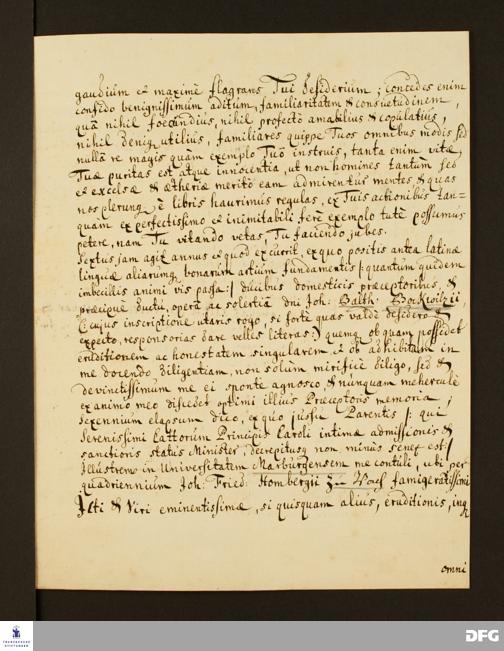 gaudium et maximè flagrans Tui desiderium; concedes enim
confido benignissimum aditum, familiaritatem & consuetudinem,
quâ nihil foecundius, nihil profectò amabilius & copulatius,
nihil deniq utilius, familiares quippe Tuos omnibus modis sed
nullâ re magis quam exemplo Tuo instruis, tanta enim vitæ
Tuæ puritas est atque innocentia, ut non homines tantum sed
et excelsæ & ætheriæ meritò eam admirentur mentes & quas
nos plerunq è libris haurimus regulas, ex Tuis actionibus tan-
quam ex perfectissimo et inimitabili ferè exemplo tutè possumus
petere, nam Tu vitando vetas, Tu faciendo jubes.
Sextus jam agit annus et quod excurrit, ex quo positis antea latinæ
linguæ aliarumq bonarum artium fundamentis /: quantum quidem
imbecillis animi vis passa :/ ducibus domesticis præceptoribus, &
præcipuè ductu, operâ ac solertiâ dni Joh: Balth:
Cujus inscriptione utaris rogo, si fortè quas valdè desidero &
expecto, responsorias dare velles literas :) quemq ob quam possidet
eruditionem ac honestatem singularem et ob adhibitam in
me docendo diligentiam, non solum mirificè diligo, sed &
devinctissimum me ei sponte agnosco, & nunquam meherculè
ex animo meo discedet optimi illius Præceptoris memoria;
Sexennium elapsum dico, ex quo jussu Parentis /: qui
Serenissimi Cattorum Principis Caroli intimæ admissionis &
sanctioris status Minister decrepitusq non minus senex est :/
Illustrem in Universitatem Marburgensem me contuli, uti per
quadriennium Joh: Fried: Hombergii zu Vach famigeratissimi
Jcti & Viri eminentissimæ, si quisquam alius, eruditionis, inq
omni
FRANCKESCHE
STIFTUNGEN
DFG